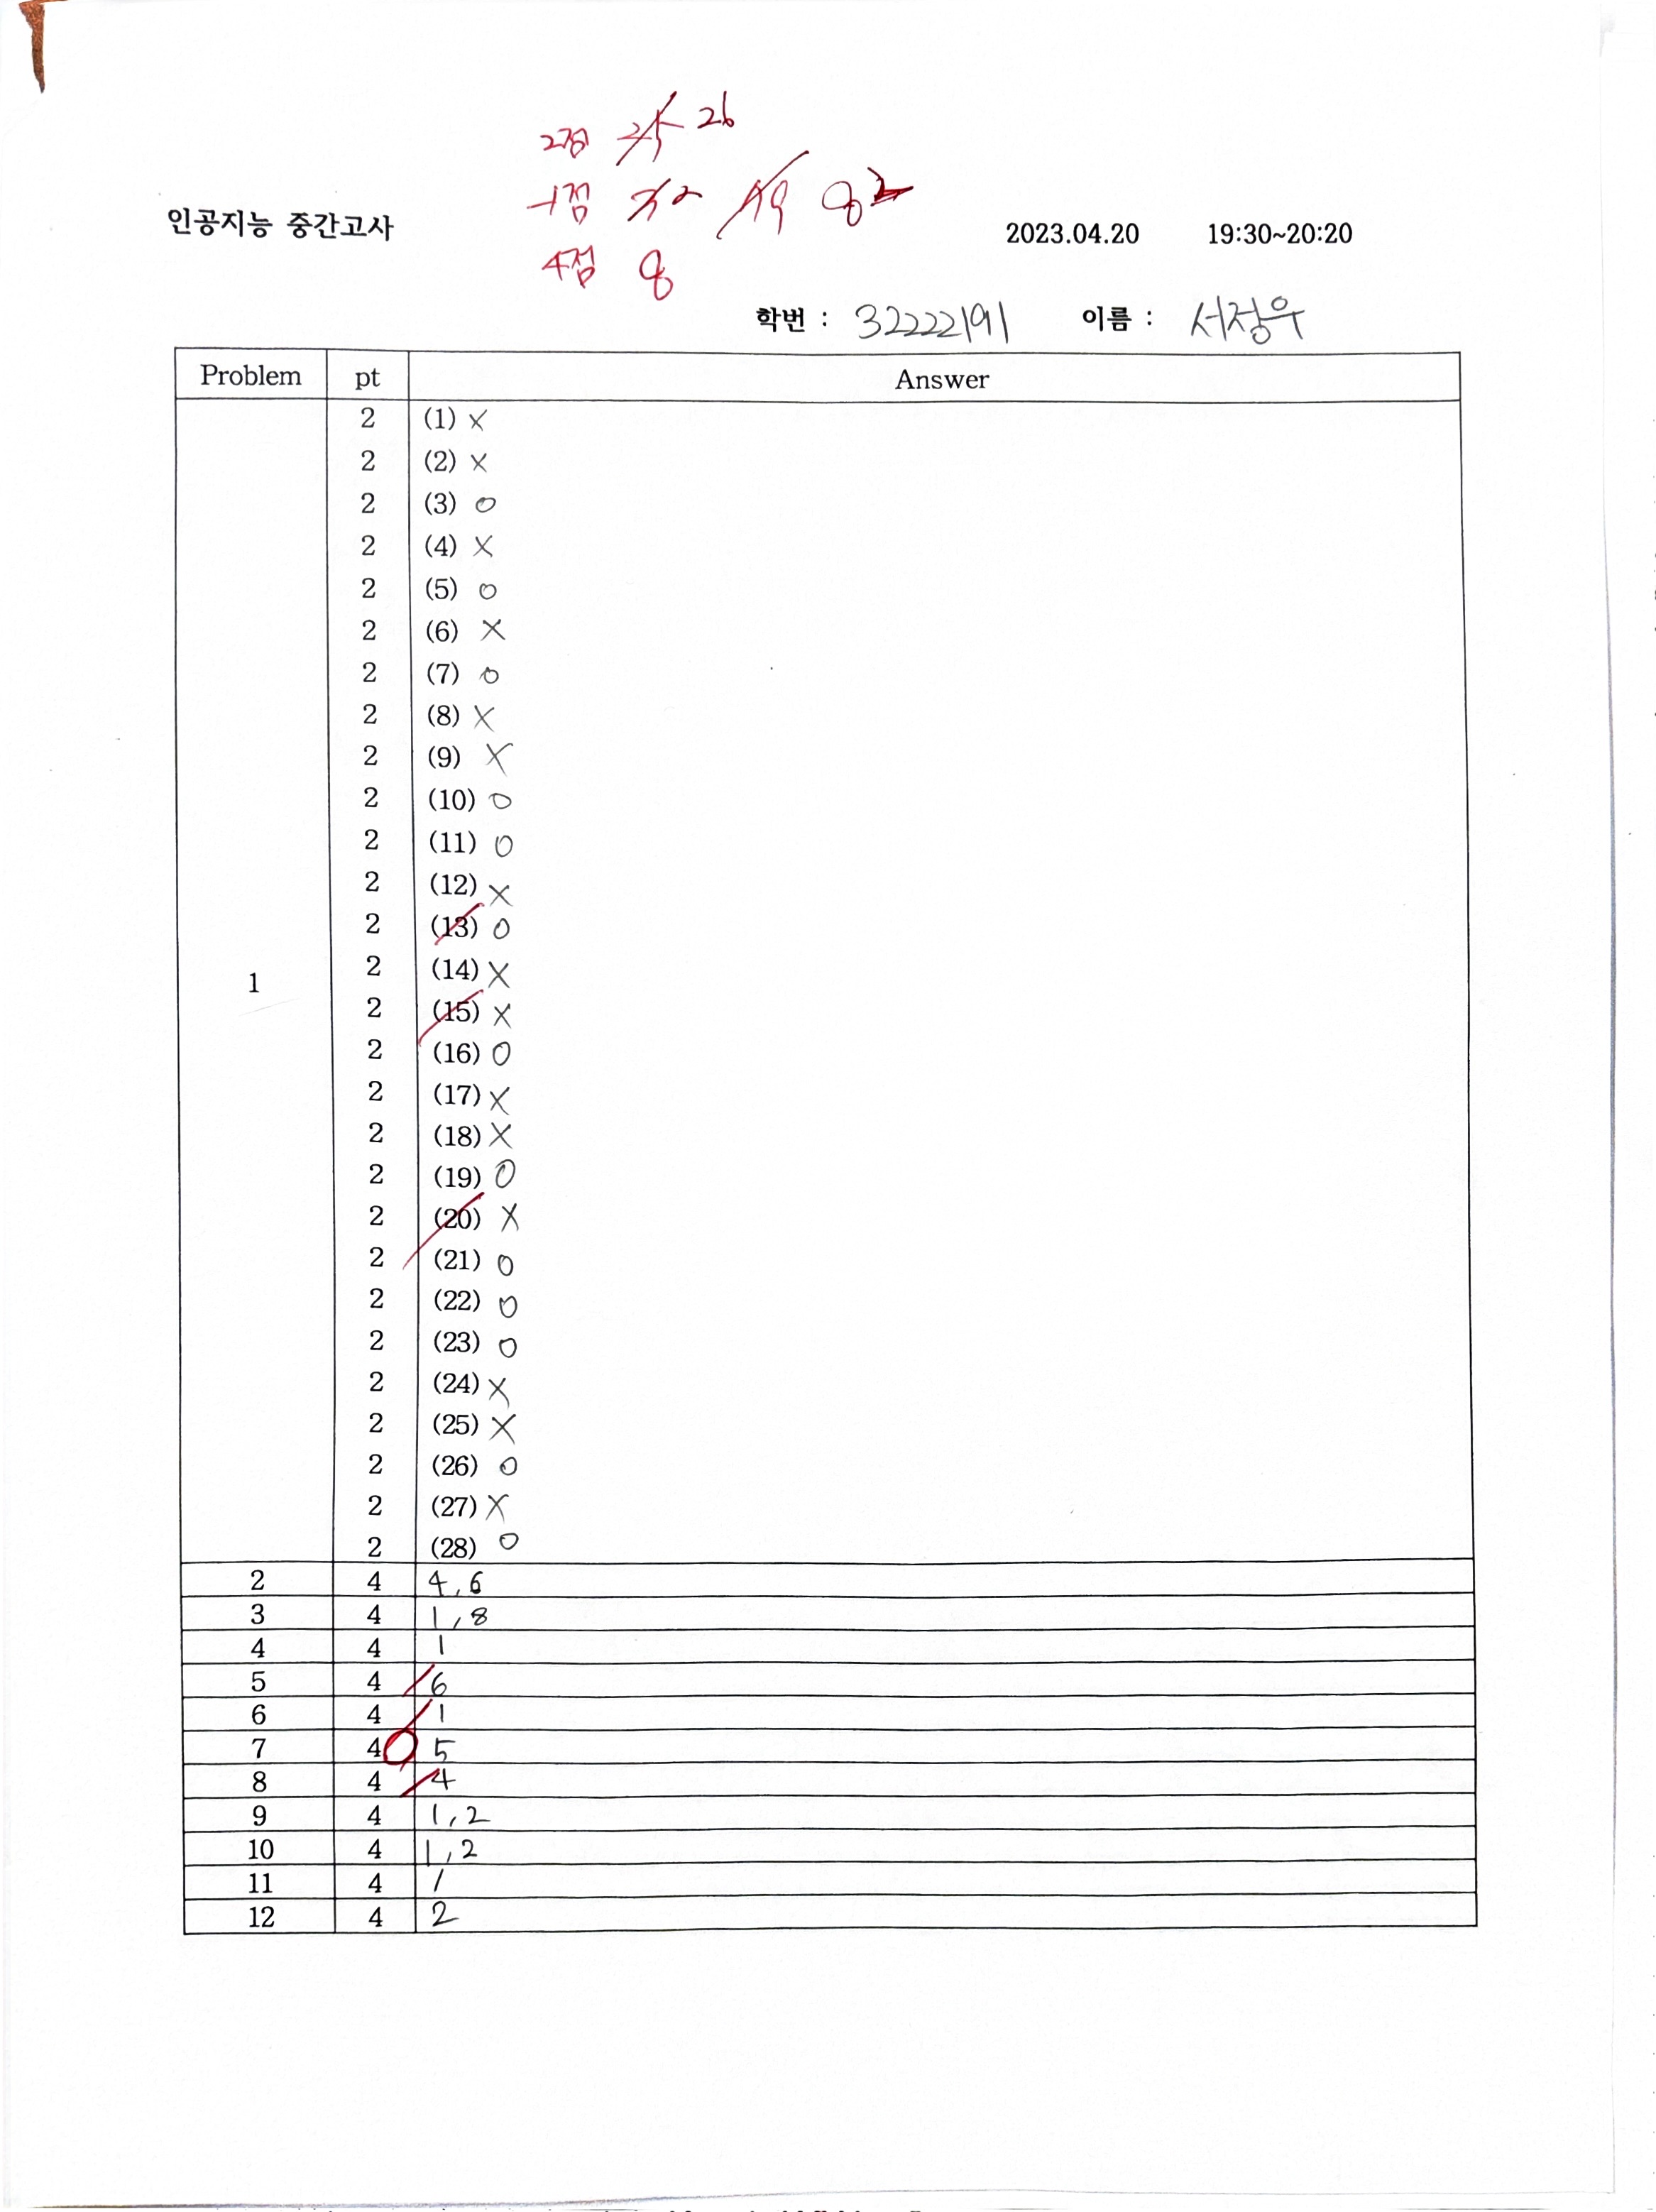 2점 25 26
4점 8
인공지능 중간고사
2023.04.20 19:30~20:20
학번 : 32222191 이름 : 서정우
Problem pt Answer
1
2 (1) X
2 (2) X
2 (3) O
2 (4) X
2 (5) O
2 (6) X
2 (7) O
2 (8) X
2 (9) X
2 (10) O
2 (11) O
2 (12) X
2 (13) O
2 (14) X
2 (15) X
2 (16) O
2 (17) X
2 (18) X
2 (19) O
2 (20) X
2 (21) O
2 (22) O
2 (23) O
2 (24) X
2 (25) X
2 (26) O
2 (27) X
2 (28) O
2 4 4,6
3 4 1,8
4 4 1
5 4 6
6 4 1
7 4 5
8 4 4
9 4 1,2
10 4 1,2
11 4 1
12 4 2